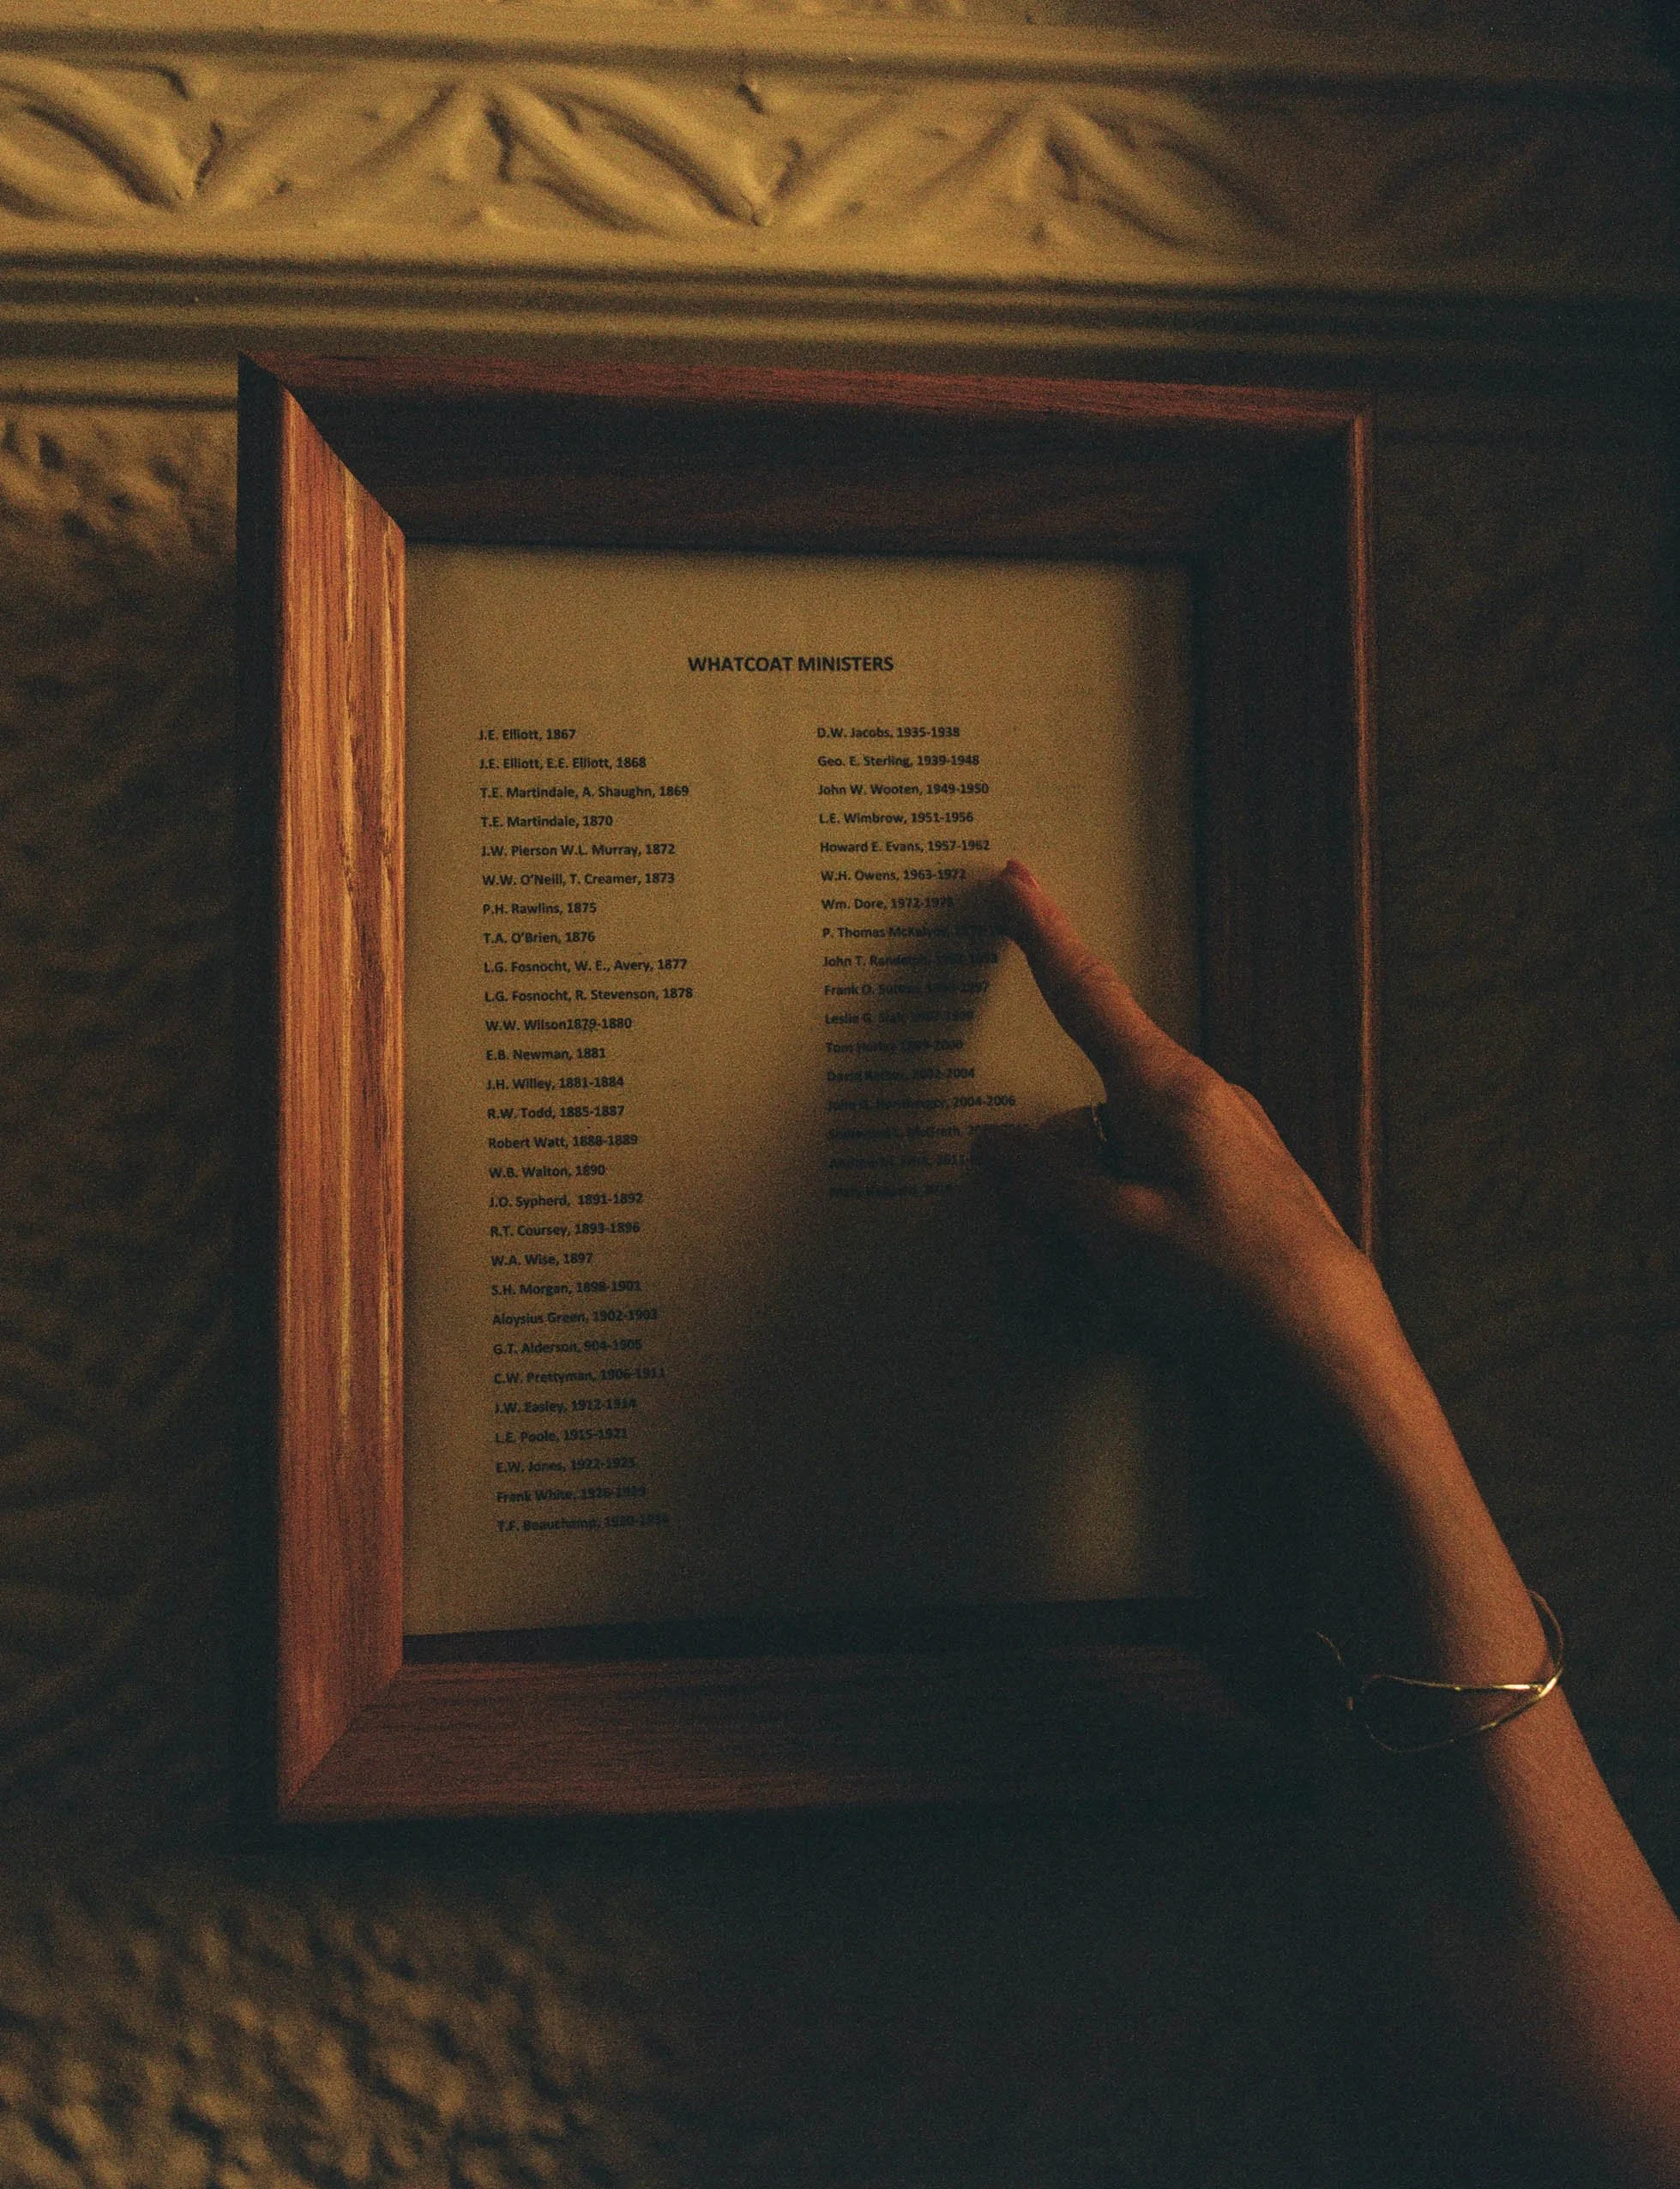 WHATCOAT MINISTERS
J.E. Elliott, 1867
J.E. Elliott, E.E. Elliott, 1868
T.E. Martindale, A. Shaughn, 1869
T.E. Martindale, 1870
J.W. Pierson W.L. Murray, 1872
W.W. O'Neill, T. Creamer, 1873
P.H. Rawlins, 1875
T.A. O'Brien, 1876
L.G. Fosnocht, W. E., Avery, 1877
L.G. Fosnocht, R. Stevenson, 1878
W.W. Wilson1879-1880
E.B. Newman, 1881
J.H. Willey, 1881-1884
R.W. Todd, 1885-1887
Robert Watt, 1888-1889
W.B. Walton, 1890
J.O. Sypherd, 1891-1892
R.T. Coursey, 1893-1896
W.A. Wise, 1897
S.H. Morgan, 1898-1901
Aloysius Green, 1902-1903
G.T. Alderson, 904-1905
C.W. Prettyman, 1906-1911
J.W. Easley, 1912-1914
L.E. Poole, 1915-1921
E.W. Jones, 1922-1925
Frank White, 1926-1929
T.F. Beauchamp, 1930-1934
D.W. Jacobs, 1935-1938
Geo. E. Sterling, 1939-1948
John W. Wooten, 1949-1950
L.E. Wimbrow, 1951-1956
Howard E. Evans, 1957-1962
W.H. Owens, 1963-1972
Wm. Dore,
P. Thomas
John T.
Frank O.
Leslie G.
Tom
David 2002-2004
2004-2006
McGrath,